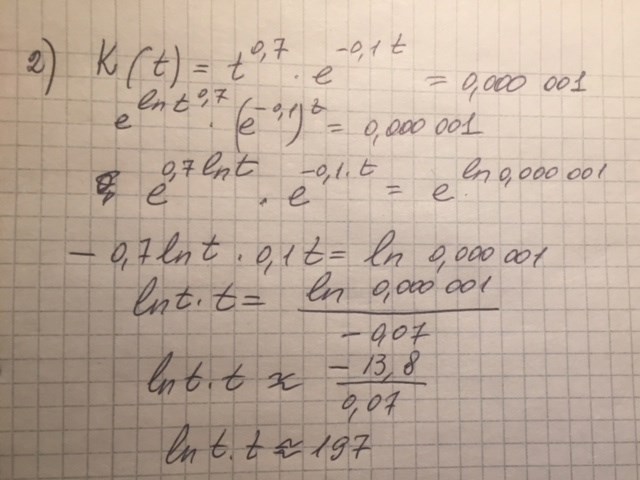 2) K(t) = t^0,7 · e^-0,1 t = 0,000 001
e^ln t^0,7 · (e^-0,1)^t = 0,000 001
e^0,7 ln t · e^-0,1·t = e^ln 0,000 001
- 0,7 ln t · 0,1 t = ln 0,000 001
ln t · t = ln 0,000 001 / -0,07
ln t · t ≈ -13,8 / 0,07
ln t · t ≈ 197